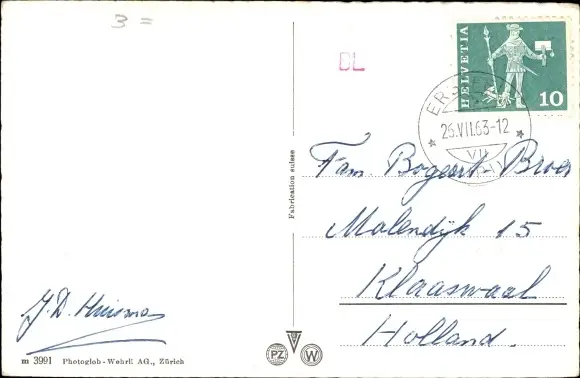 3 =
DL
HELVETIA
10
26.VII.63-12
VII
Fam. Bogert-Broer
Molendijk 15
Klaaswaal
Holland.
Fabrication suisse
J. D. Huisman
m 3991 Photoglob-Wehrli AG., Zürich
PZ W